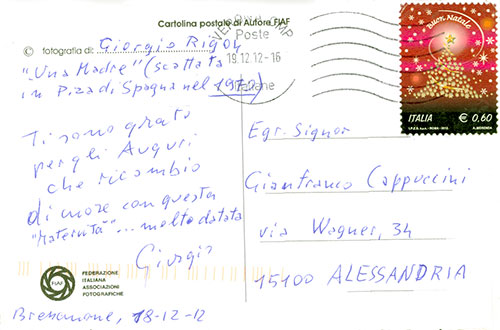 Cartolina postale di Autore FIAF
© fotografia di: Giorgio Rigon
"Una Madre" (scattata
in P.zza di Spagna nel 1970)
Ti sono grato
per gli Auguri
che ricambio
di more con questa
"Maternità"... molto datata
Giorgio
FIAF
FEDERAZIONE
ITALIANA
ASSOCIAZIONI
FOTOGRAFICHE
Bressanone, 18-12-12
Poste
19.12.12-16
Italiane
Buon Natale
ITALIA € 0,60
Egr. Signor
Gianfranco Cappuccini
via Wagner, 34
15100 ALESSANDRIA